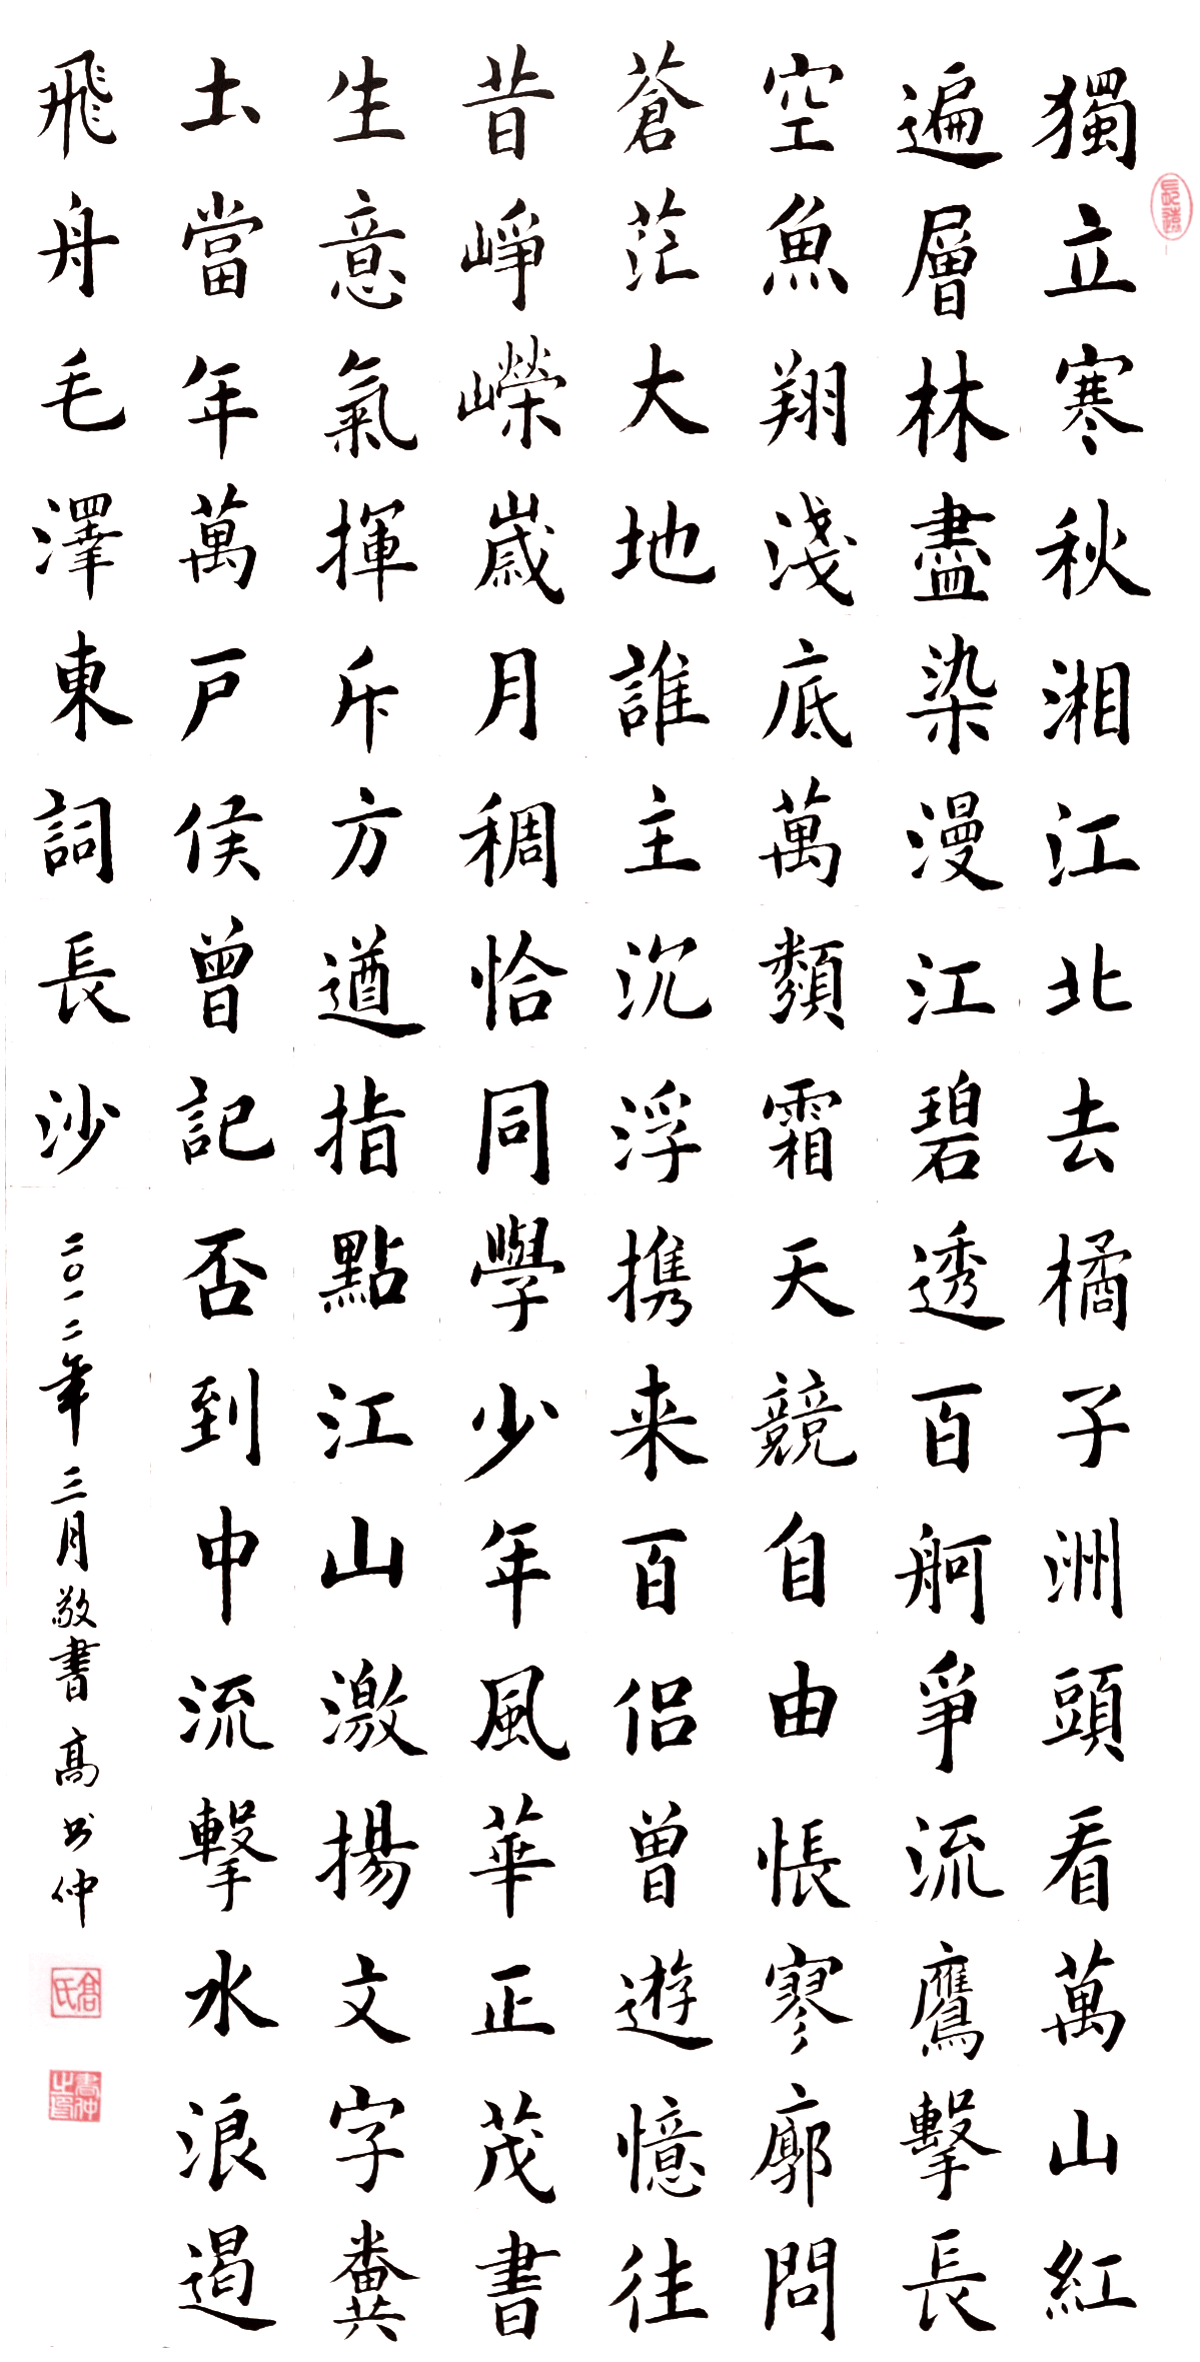 獨立寒秋湘江北去橘子洲頭看萬山紅
遍層林盡染漫江碧透百舸爭流鷹擊長
空魚翔淺底萬類霜天競自由悵寥廓問
蒼茫大地誰主沉浮携来百侣曾遊憶往
昔崢嶸歲月稠恰同學少年風華正茂書
生意氣揮斥方遒指點江山激揚文字糞
土當年萬户侯曾記否到中流擊水浪遏
飛舟毛澤東詞長沙
二〇一二年三月敬書高书仲
高氏
書仲之印